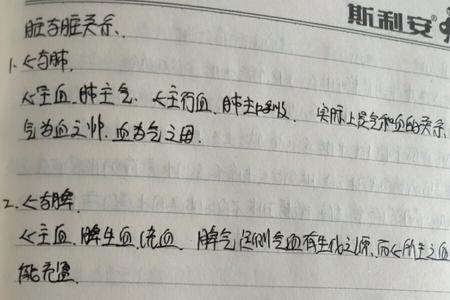 斯利安®
脏与脏关系、
1. 心与肺
心主血、肺主气、心主行血、肺主呼吸、实际上是气和血的关系,
气为血之帅、血为气之母、
2. 心与脾
心主血、脾生血、统血、脾气足则气血有生化之源、而心所主之血
能充盈、